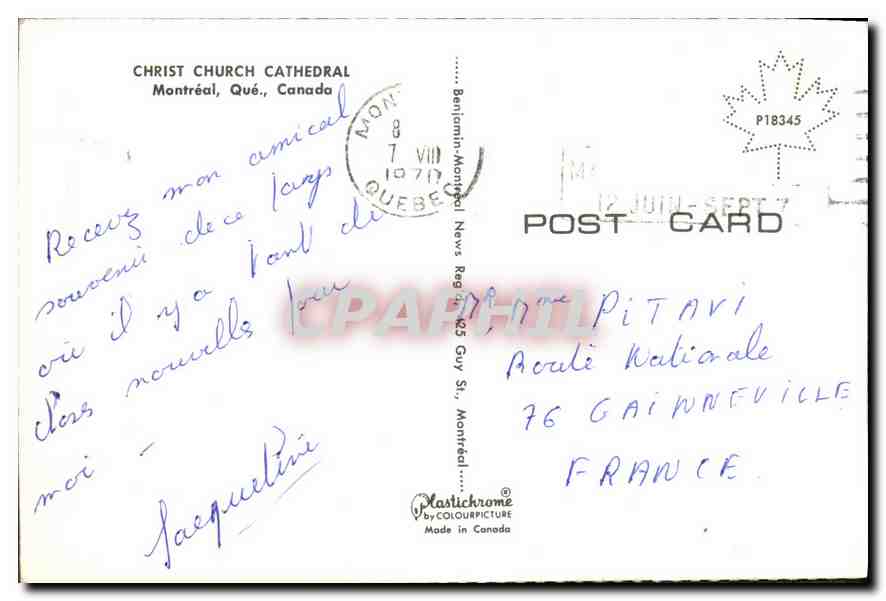 CHRIST CHURCH CATHEDRAL
Montréal, Qué., Canada
Recevez mon amical
souvenir de ce pays
où il y a tant de
choses nouvelles pour
moi -
Jacqueline
MON
8
7 VIII
1970
QUEBEC
Benjamin-Montréal News Reg'd. 425 Guy St., Montréal
P18345
12 JUIN-SEPT 7
POST CARD
Mr, Mme PiTAVi
Route Nationale
76 GAiNNEViLLE
FRANCE.
Plastichrome®
by COLOURPICTURE
Made in Canada
CPAPHIL